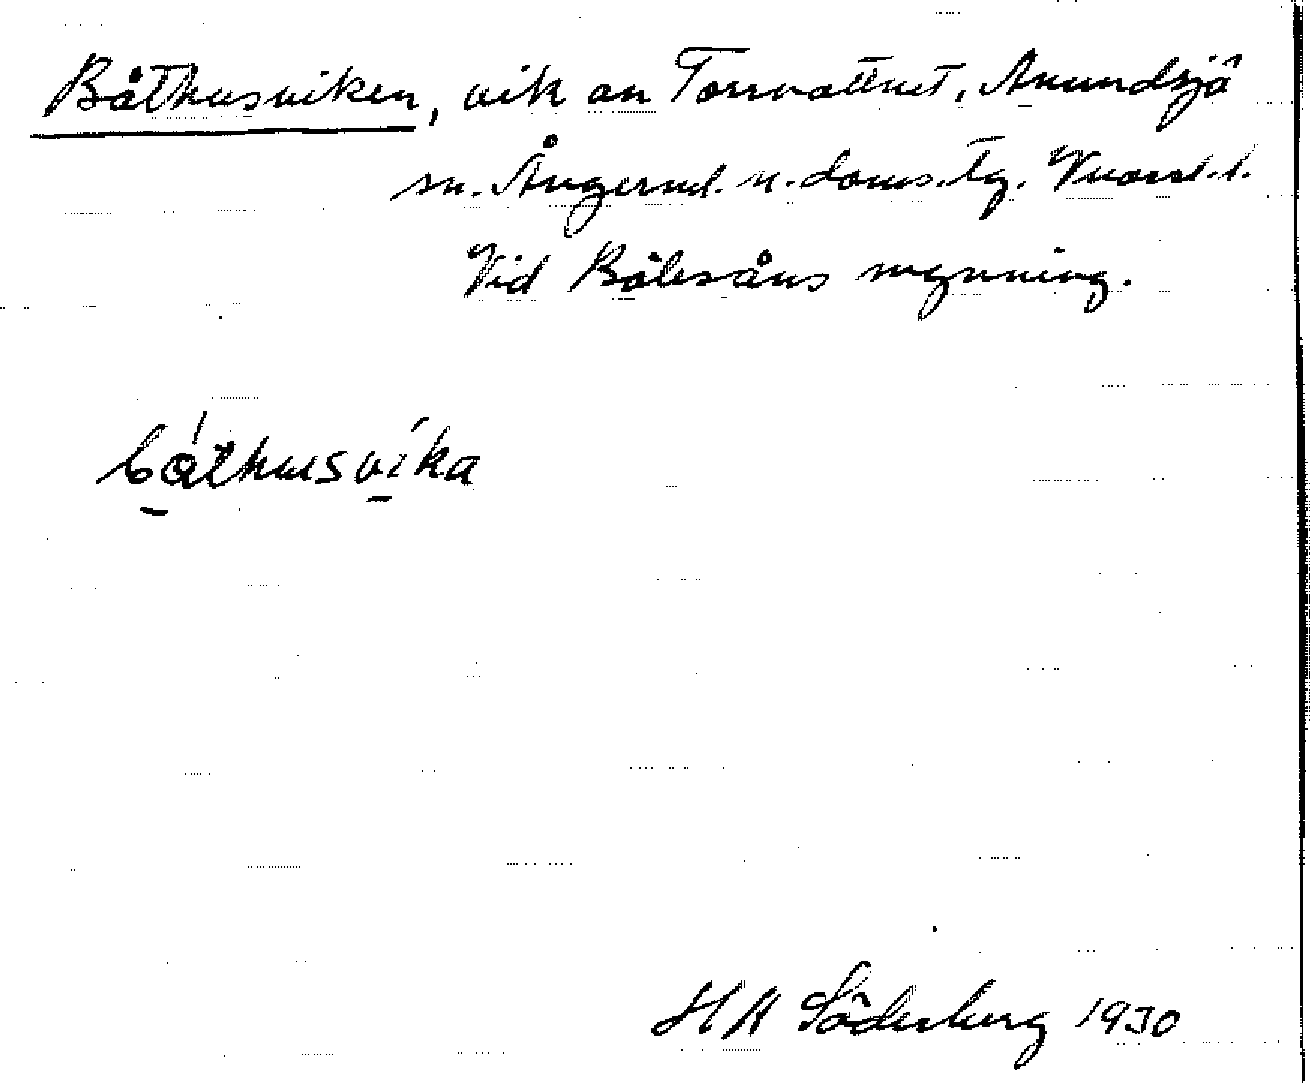 Båthusviken, vik an Torrvattnet, Anundsjö
sn. Ångerml. n. doms. tg. Vnorrl. l.
Vid Bölesåns mynning.
båthusvika
H A Söderberg 1930